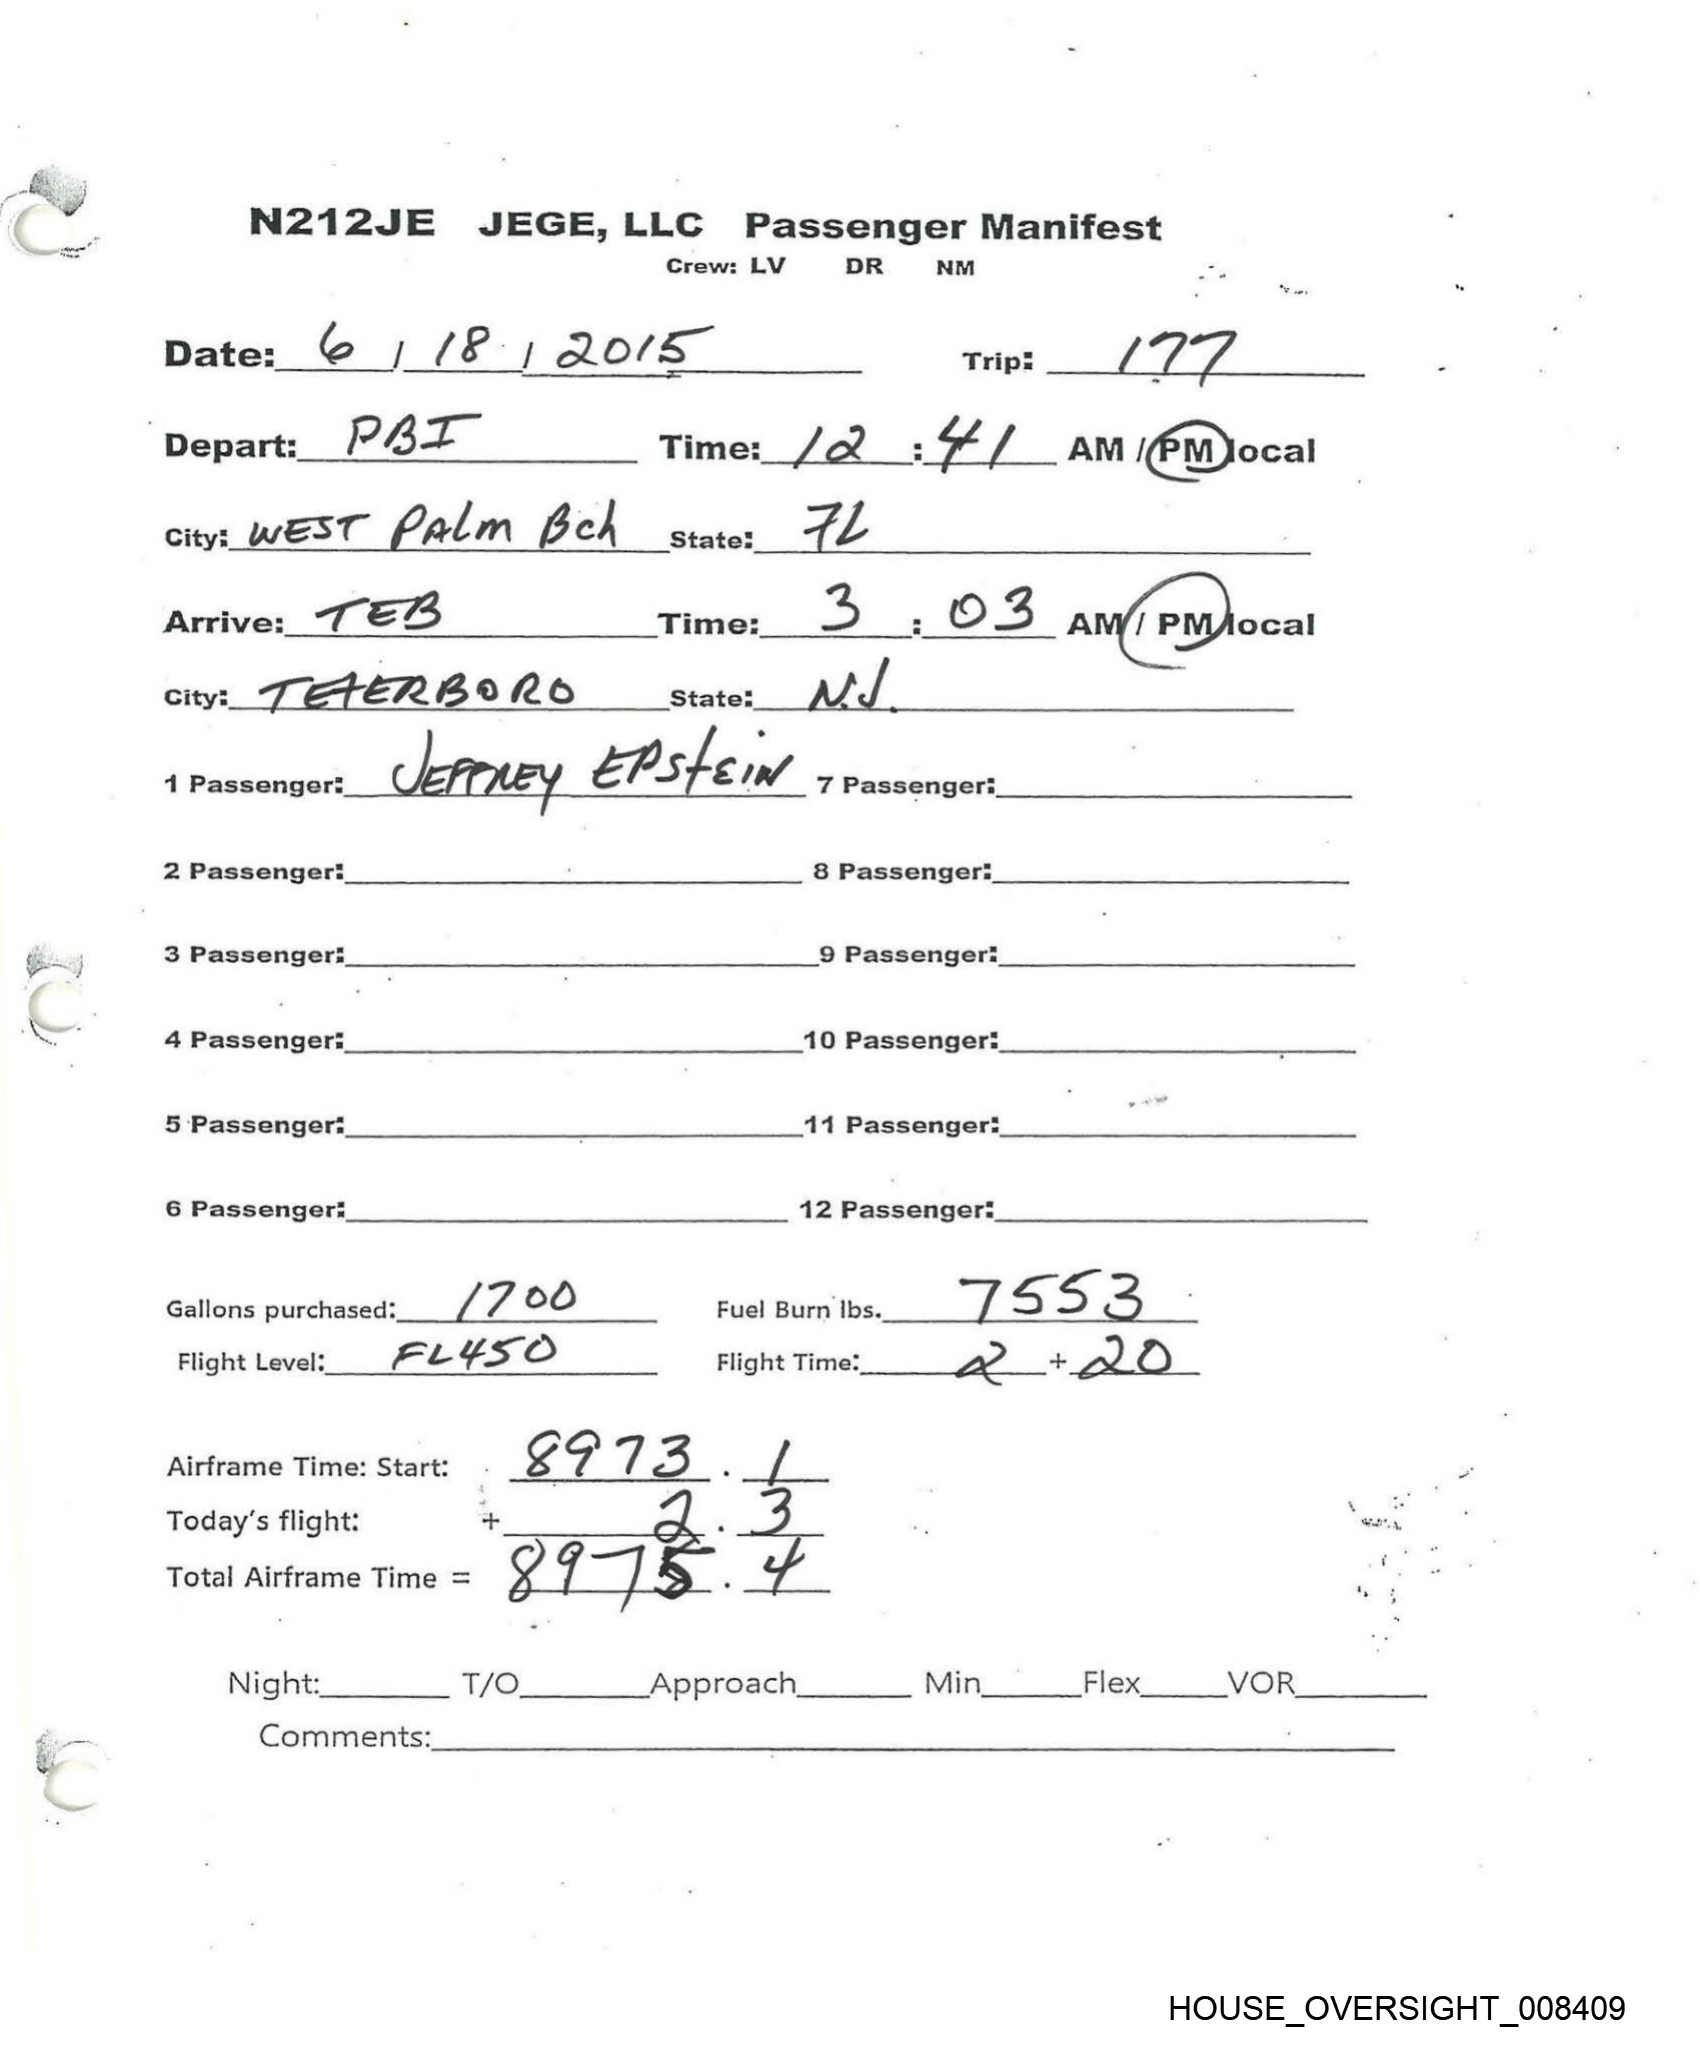 N212JE JEGE, LLC Passenger Manifest
Crew: LV DR NM
Date: 6 / 18 / 2015 Trip: 177
Depart: PBI Time: 12 : 41 AM / PM local
City: WEST PAlm Bch State: FL
Arrive: TEB Time: 3 : 03 AM / PM local
City: TETERBORO State: N.J.
1 Passenger: JEFFREY EPStEiN 7 Passenger:
2 Passenger: 8 Passenger:
3 Passenger: 9 Passenger:
4 Passenger: 10 Passenger:
5 Passenger: 11 Passenger:
6 Passenger: 12 Passenger:
Gallons purchased: 1700 Fuel Burn lbs. 7553
Flight Level: FL450 Flight Time: 2 + 20
Airframe Time: Start: 8973 . 1
Today's flight: + 2 . 3
Total Airframe Time = 8975 . 4
Night: T/O Approach Min Flex VOR
Comments:
HOUSE_OVERSIGHT_008409